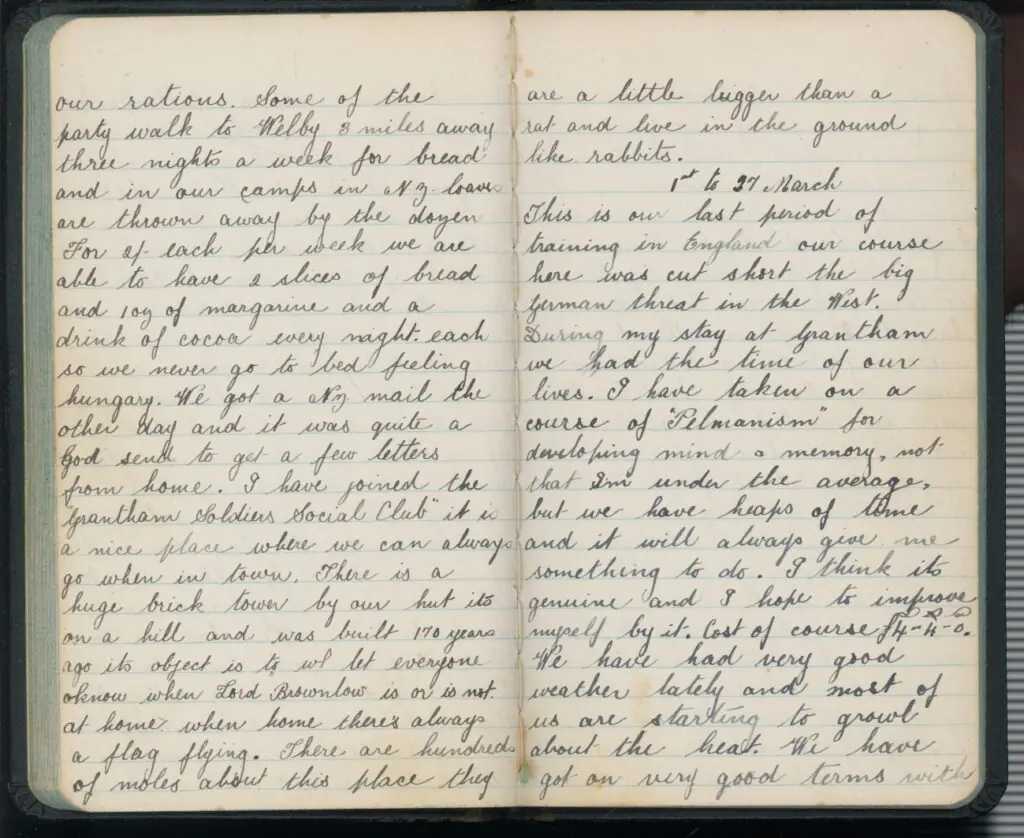 our rations. Some of the
party walk to Welby 3 miles away
three nights a week for bread
and in our camps in NZ loaves
are thrown away by the dozen
For 2/- each per week we are
able to have 2 slices of bread
and 1 oz of margarine and a
drink of cocoa every night. each
so we never go to bed feeling
hungary. We got a NZ mail the
other day and it was quite a
God send to get a few letters
from home. I have joined the
"Grantham Soldiers Social Club" it is
a nice place where we can always
go when in town. There is a
huge brick tower by our hut its
on a hill and was built 170 years
ago its object is to let everyone
know when Lord Brownlow is or is not.
at home when home theres always
a flag flying. There are hundreds
of moles about this place they
are a little bigger than a
rat and live in the ground
like rabbits.
1st to 27 March
This is our last period of
training in England our course
here was cut short the big
German threat in the West.
During my stay at Grantham
we had the time of our
lives. I have taken on a
course of "Pelmanism" for
developing mind & memory, not
that Im under the average,
but we have heaps of time
and it will always give me
something to do. I think its
genuine and I hope to improve
myself by it. Cost of course £4-4-0.
We have had very good
weather lately and most of
us are starting to growl
about the heat. We have
got on very good terms with